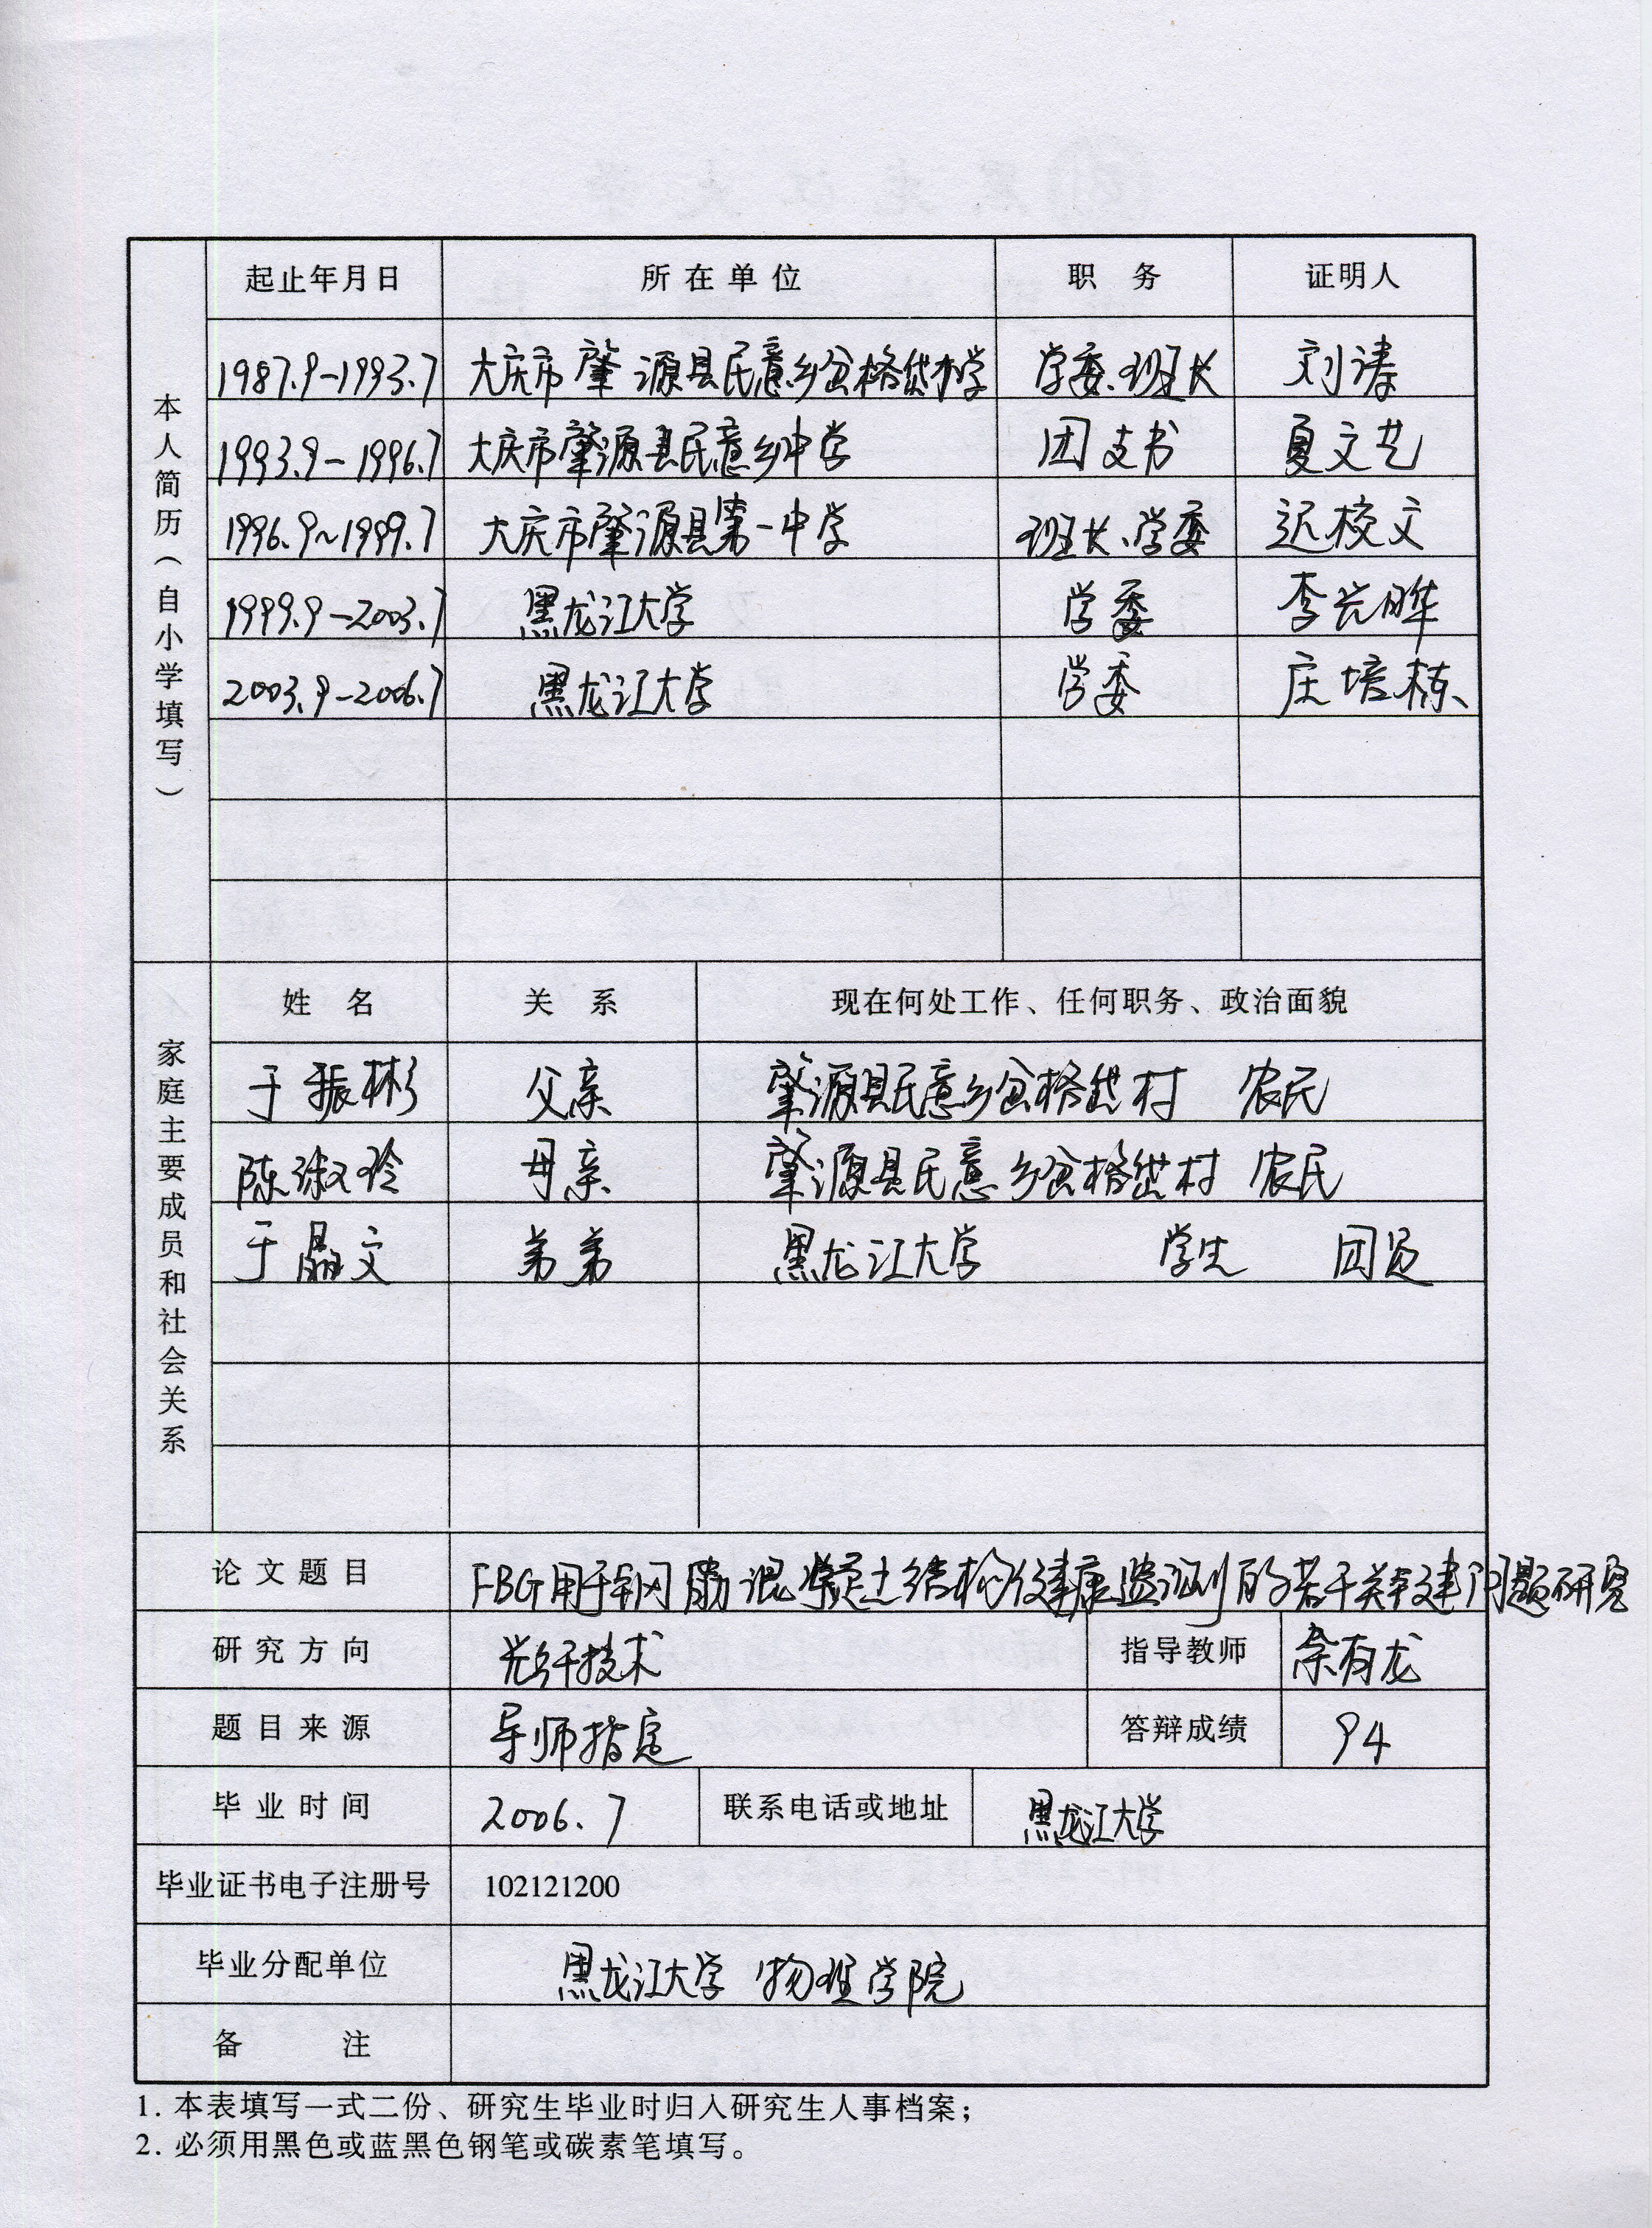 起止年月日 所在单位 职务 证明人
本人简历（自小学填写）
1987.9-1993.7 大庆市肇源县民意乡岔格岱村小学 学委、班长 刘涛
1993.9-1996.7 大庆市肇源县民意乡中学 团支书 夏文艺
1996.9~1999.7 大庆市肇源县第一中学 班长、学委 迟校文
1999.9-2003.7 黑龙江大学 学委 李光晔
2003.9-2006.7 黑龙江大学 学委 庄培栋
家庭主要成员和社会关系
姓名 关系 现在何处工作、任何职务、政治面貌
于振彬 父亲 肇源县民意乡岔格岱村 农民
陈淑玲 母亲 肇源县民意乡岔格岱村 农民
于晶文 弟弟 黑龙江大学 学生 团员
论文题目 FBG用于钢筋混凝土结构健康监测的若干关键问题研究
研究方向 光纤技术 指导教师 余有龙
题目来源 导师指定 答辩成绩 94
毕业时间 2006.7 联系电话或地址 黑龙江大学
毕业证书电子注册号 102121200
毕业分配单位 黑龙江大学 物理学院
备注
1. 本表填写一式二份、研究生毕业时归入研究生人事档案；
2. 必须用黑色或蓝黑色钢笔或碳素笔填写。